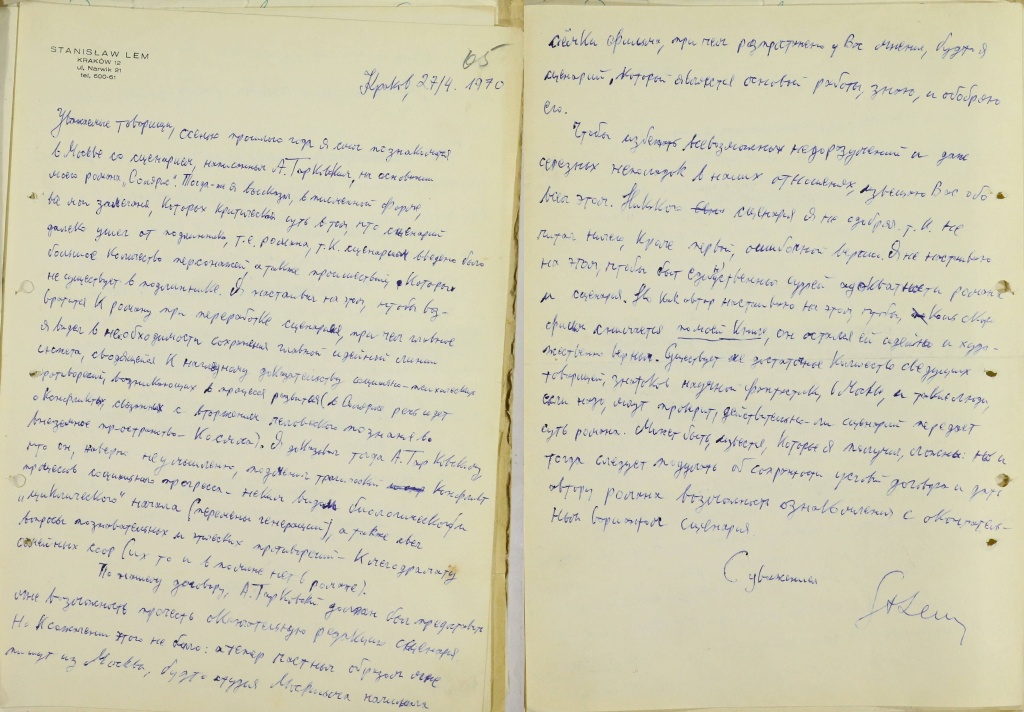 STANISŁAW LEM
KRAKÓW 12
ul. Narwik 21
tel. 600-61
65
Краков, 27/4. 1970
Уважаемые товарищи, осенью прошлого года я смог познакомиться
в Москве со сценарием, написанным А. Тарковским, на основании
моего романа „Солярис“. Тогда-же я высказал, в письменной форме,
все мои замечания, которых критическая суть в том, что сценарий
далеко ушел от подлинника, т.е. романа, т.к. в сценарием введено было
большое количество персонажей, а также происшествий, которых
не существует в подлиннике. Я настаивал на этом, чтобы воз-
вратится к роману при переработке сценария, при чем главное
я видел в необходимости сохранения главной идейной линии
сюжета, сводящейся к наглядному доказательству социально-психических
противоречий, возникающих в процессе развития (в Солярис речь идет
о конфликтах, связанных с вторжением человеского познания во
внеземное пространство - Космоса). Я доказывал тогда А. Тарковскому
что он, наверно неумышленно, подменил трагический конфликт
процессов социального прогресса - неким видом биологической
„циклического“ начала (перемены генераций), а также свел
вопросы познавательных и этических противоречий - к мелодраматизму
семейных ссор (их то и в помине нет в романе).
По нашему договору, А. Тарковский должен был предоставить
мне возможность прочесть окончательную редакцию сценария
Но к сожалению этого не было: а теперь частным образом мне
пишут из Москвы, будто студия Мосфильма начинала
съёмки фильма, при чем распространено у Вас мнение, будто я
сценарий, который является основой работы, знаю, и одобряю
его.
Чтобы избежать всевозможных недоразумений и даже
серезных неполадок в наших отношениях, извещаю Вас обо
всем этом. Никакого сценария я не одобрял, т.к. не
читал ничего, кроме первой, ошибочной версии. Я не настаиваю
на этом, чтобы быть единственным судьёй адекватности романа
и сценария. Но как автор настаиваю на этом, чтобы, если скоро
фильм снимается по моей книге, он остался ей идейно и худо-
жественно верным. Существует же достаточное количество сведущих
товарищей, знатоков научной фантастики, в Москве, и такие люди,
если надо, могут проверить, действительно-ли сценарий передает
суть романа. Может быть, известия, которые я получил, ложны: но и
тогда следует подумать об сохранности условий договора и дать
автору романа возможность ознакомления с окончатель-
ным вариантом сценария
С уважением
St Lem